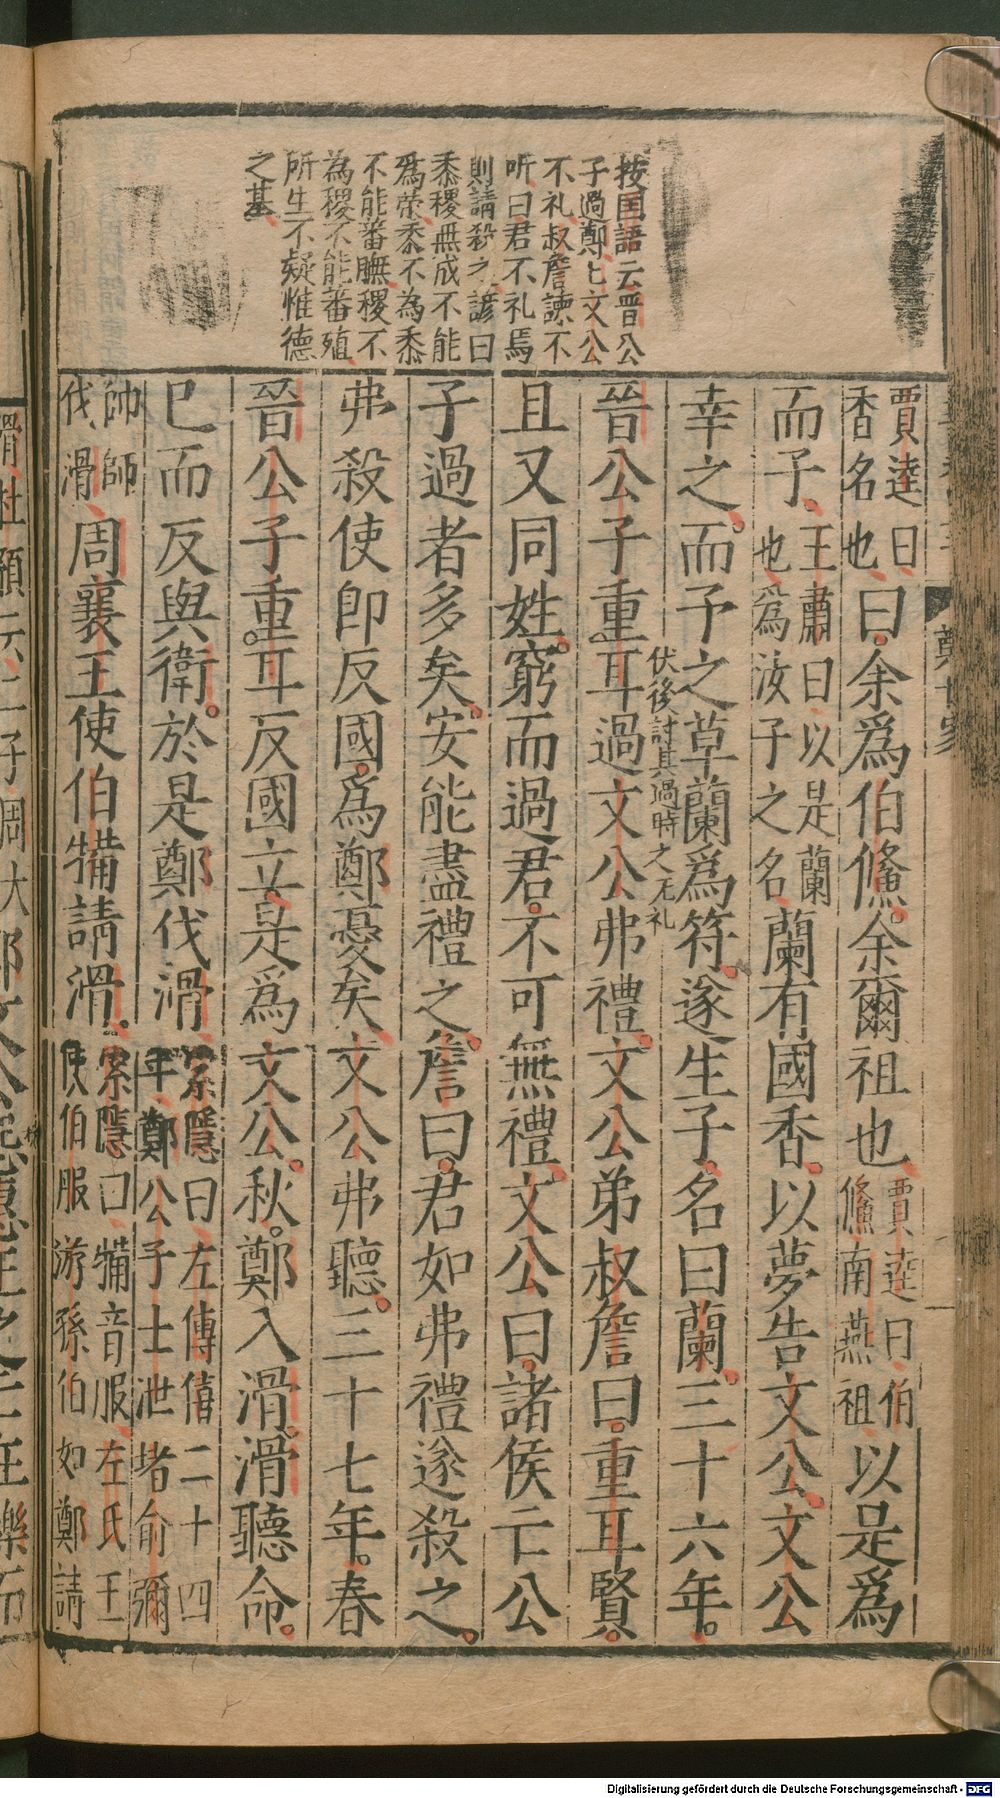 按国語云晋公
子過鄭七文公
不礼叔詹諫不
听曰君不礼焉
則請殺之諺曰
黍稷無成不能
為榮黍不為黍
不能番膴稷不
為稷不能番殖
所生不疑惟德
之基
鄭世家
賈逵曰
香名也
曰余爲伯鯈余爾祖也
賈逵曰伯
鯈南燕祖
以是爲
而子
王肅曰以是蘭
也爲汝子之名
蘭有國香以夢告文公文公
幸之而予之草蘭爲符遂生子名曰蘭三十六年
伏後討其過時之无礼
晉公子重耳過文公弗禮文公弟叔詹曰重耳賢
且又同姓窮而過君不可無禮文公曰諸侯亡公
子過者多矣安能盡禮之詹曰君如弗禮遂殺之
弗殺使即反國爲鄭憂矣文公弗聽三十七年春
晉公子重耳反國立是爲文公秋鄭入滑滑聽命
已而反與衛於是鄭伐滑
索隱曰左傳僖二十四
年鄭公子士泄堵俞彌
帥師
伐滑
周襄王使伯犕請滑
索隱曰犕音服左氏王
使伯服游孫伯如鄭請
Digitalisierung gefördert durch die Deutsche Forschungsgemeinschaft - DFG